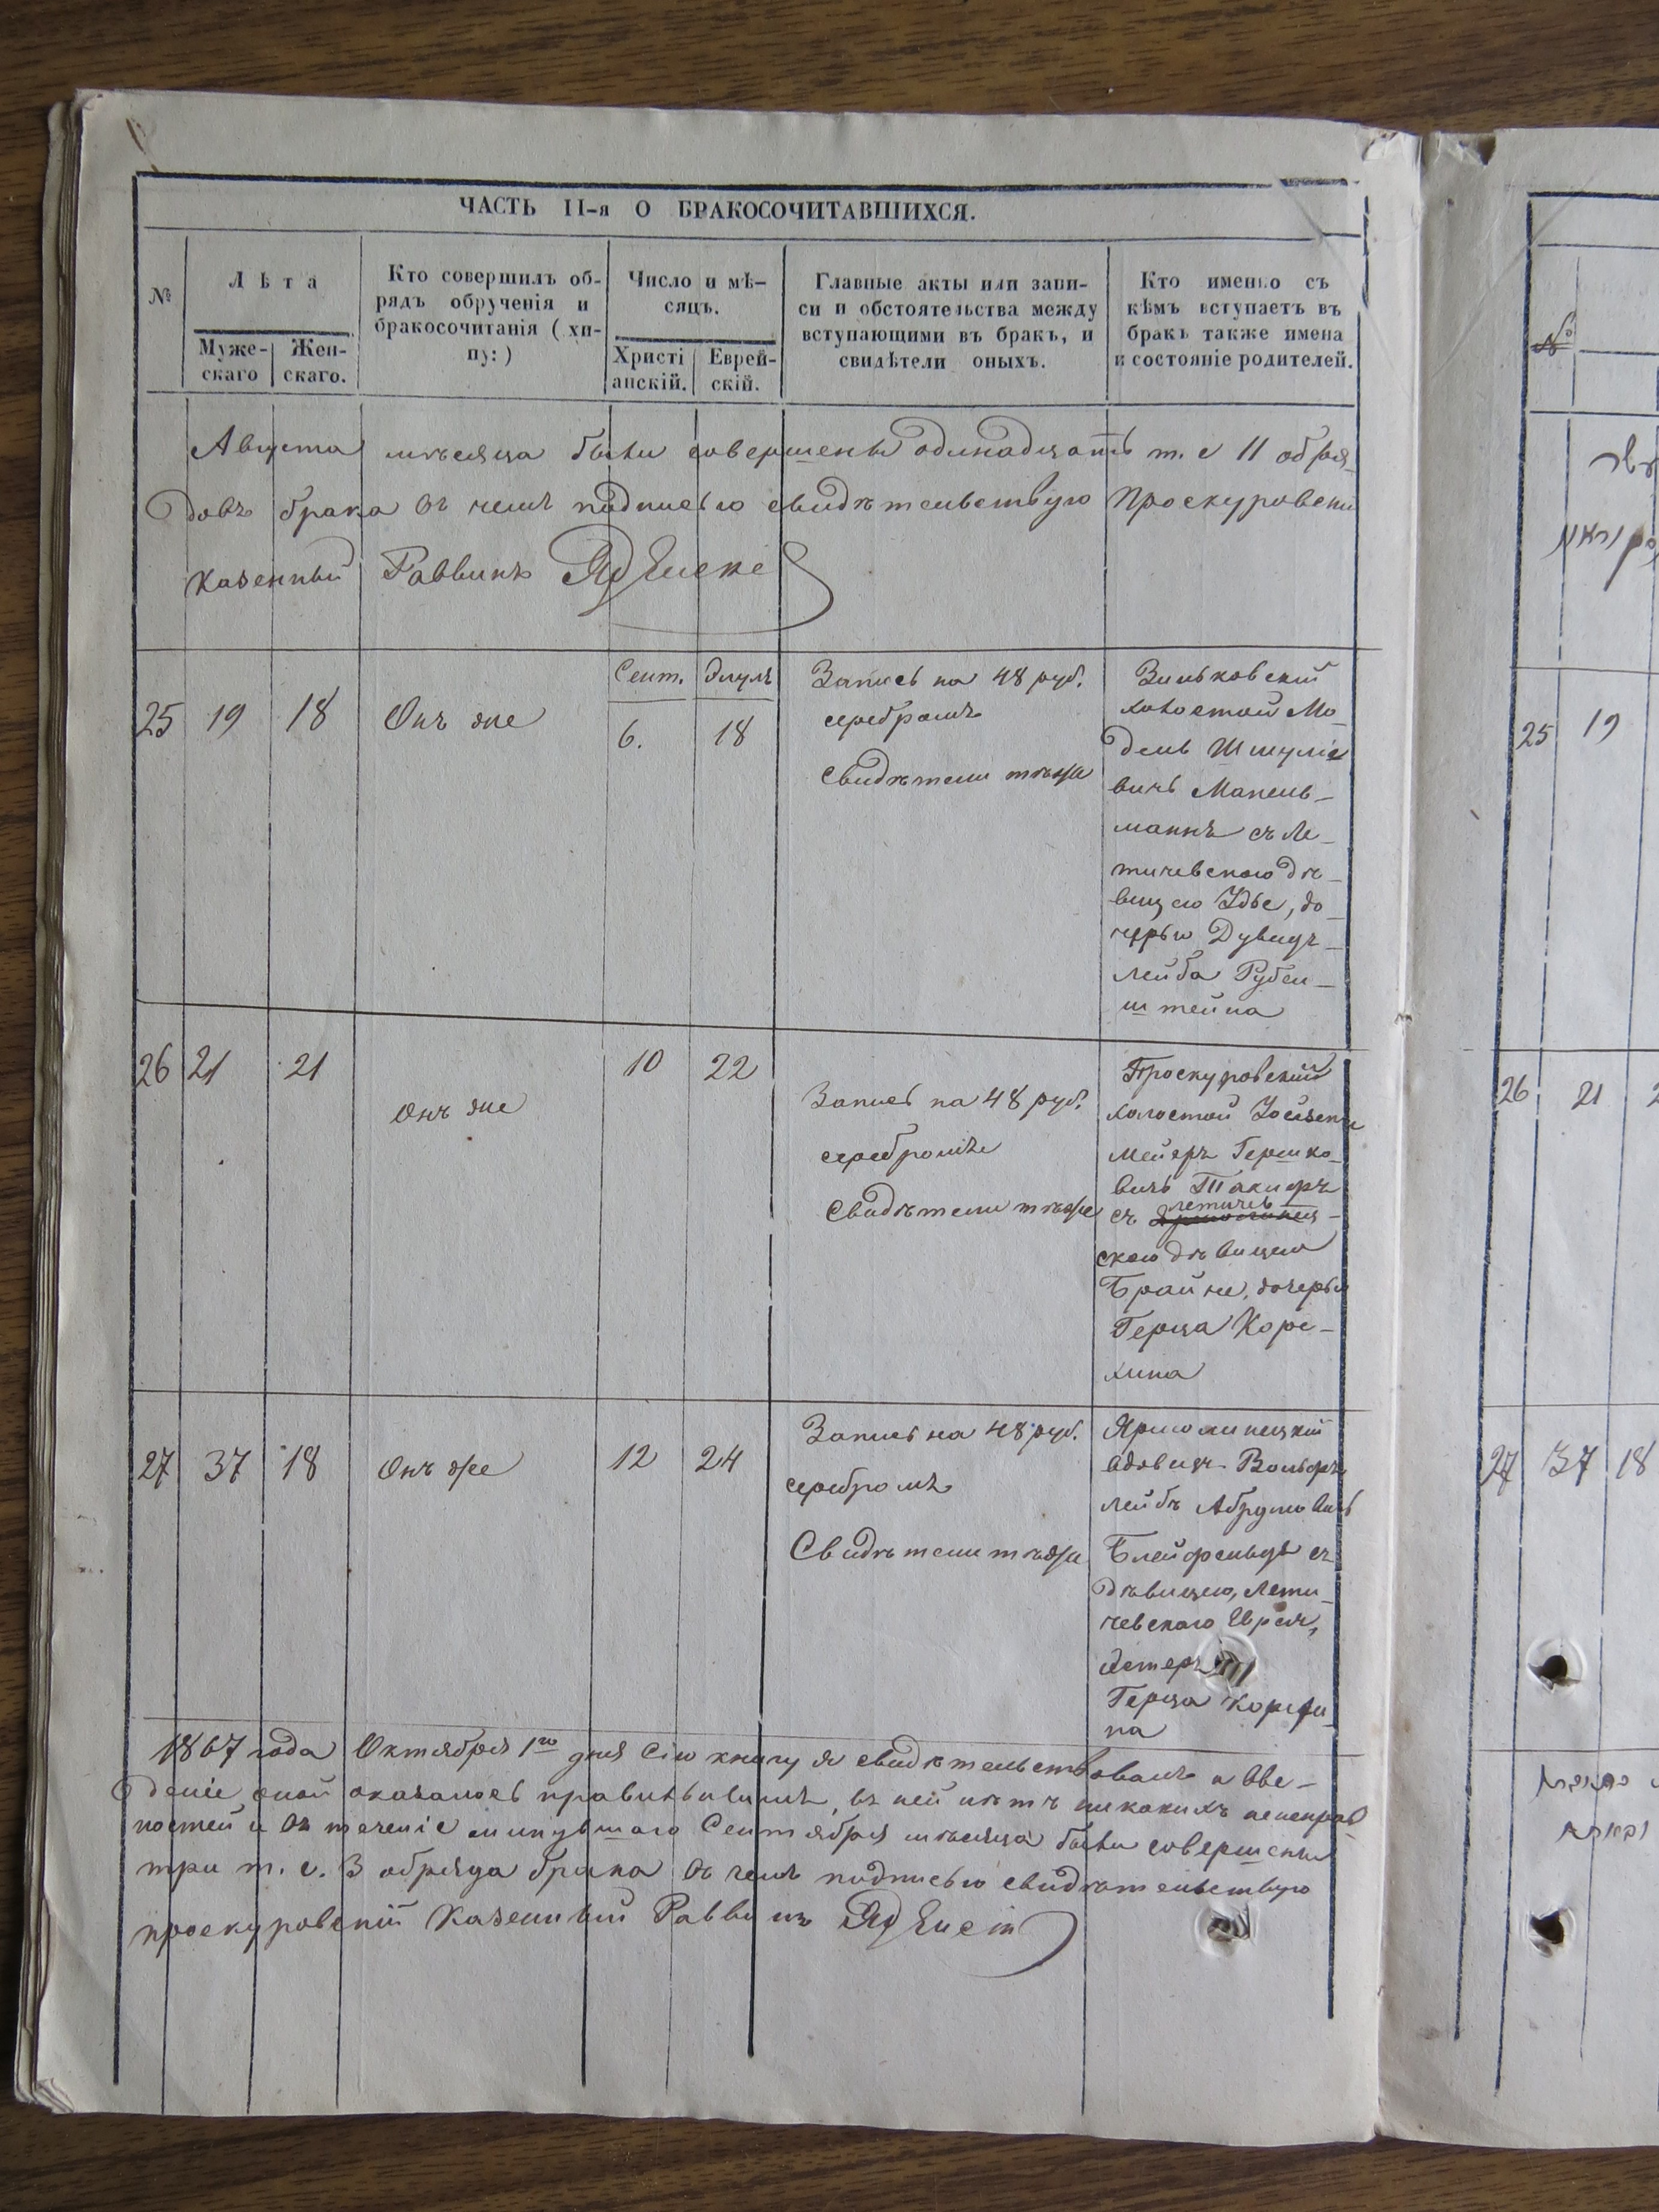 ЧАСТЬ II-я О БРАКОСОЧИТАВШИХСЯ.
№
Лѣта
Муже-
скаго
Жен-
скаго.
Кто совершилъ об-
рядъ обрученія и
бракосочитанія (хи-
пу:)
Число и мѣ-
сяцъ.
Христі
анскій.
Еврей-
скій.
Главные акты или запи-
си и обстоятельства между
вступающими въ бракъ, и
свидѣтели оныхъ.
Кто именно съ
кѣмъ вступаетъ въ
бракъ также имена
и состояніе родителей.
Августа мѣсяца были совершены одинадцать т. е 11 обря-
довъ брака въ чемъ подписью свидѣтельствую Проскуровскій
казенный Раввинъ
25 19 18 Онъ же
Сент. Элулъ
6. 18
Запись на 48 руб.
серебромъ
Свидѣтели тѣже
Зиньковскій
холостой Мо-
дель Шмуліо
вичь Мапель-
манъ съ Ле-
тичевскою дѣ-
вицею Удье, до-
черью Дувидъ-
Лейба Рубен-
штейна
26 21 21 Онъ же 10 22
Запись на 48 руб.
серебромъ
Свидѣтели тѣже
Проскуровскій
холостой
Мейеръ Гершко-
вичь
съ летичев-
скою дѣвицею
Брайне, дочерью
Герша Коре-
27 37 18 Онъ же 12 24
Запись на 48 руб.
серебромъ
Свидѣтели тѣже
Ярмолинецкій
вдовецъ Вольфъ
Лейбъ Абрумовичь
Блейфельдъ съ
дѣвицею, Лети-
чевскаго Еврея,
Герша
на
1867 года Октября 1го дня Сію книгу я свидѣтельствовалъ и Вве-
деніе оной оказалось правильнымъ, въ ней нѣтъ никакихъ неисправ
ностей и въ теченіе минувшаго Сентября мѣсяца были совершены
три т. е. 3 обряда брака въ чемъ подписью свидѣтельствую
проскуровскій Казенный Раввинъ
№
25 19
26 21
27 37 18